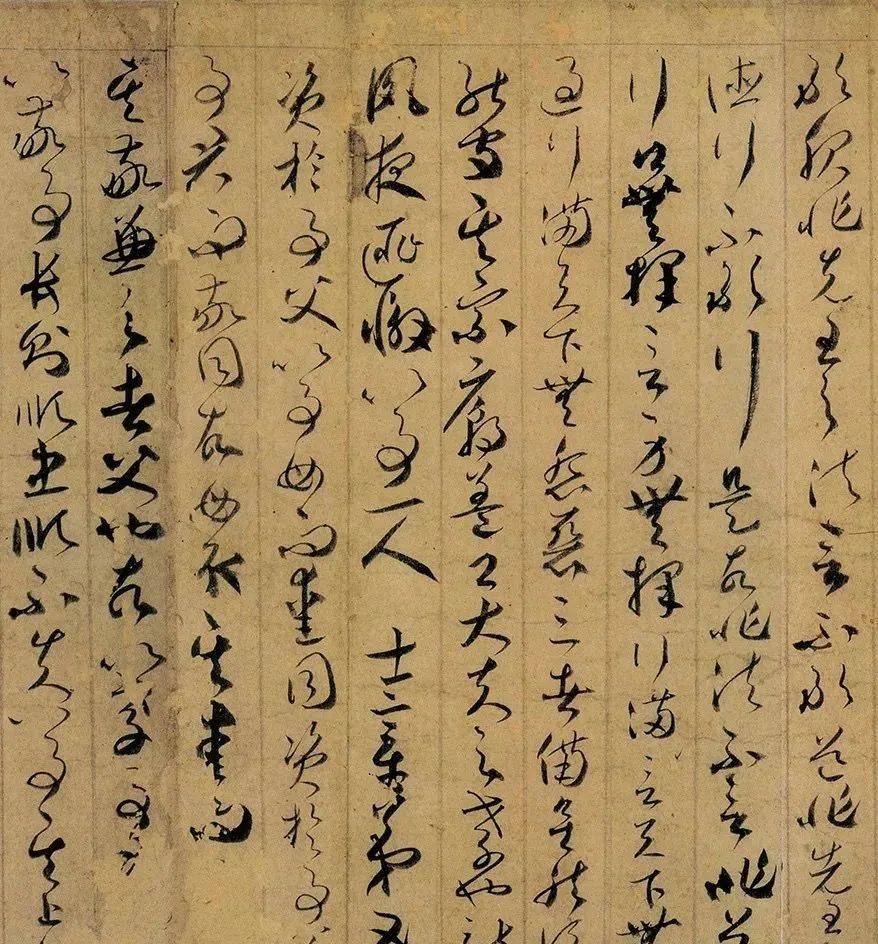 敢服非先王之法言不敢道非先王
德行不敢行是故非法不言非道
行口無擇言身無擇行滿言天下無
過行滿天下無怨惡三者備矣然後
能守其宗廟蓋卿大夫之孝也詩
夙夜匪懈以事一人 士章第五
資於事父以事母而愛同資於事父
事君而敬同故母取其愛而
其敬兼之者父也故以孝事君
以敬事長則順忠順不失以事其上